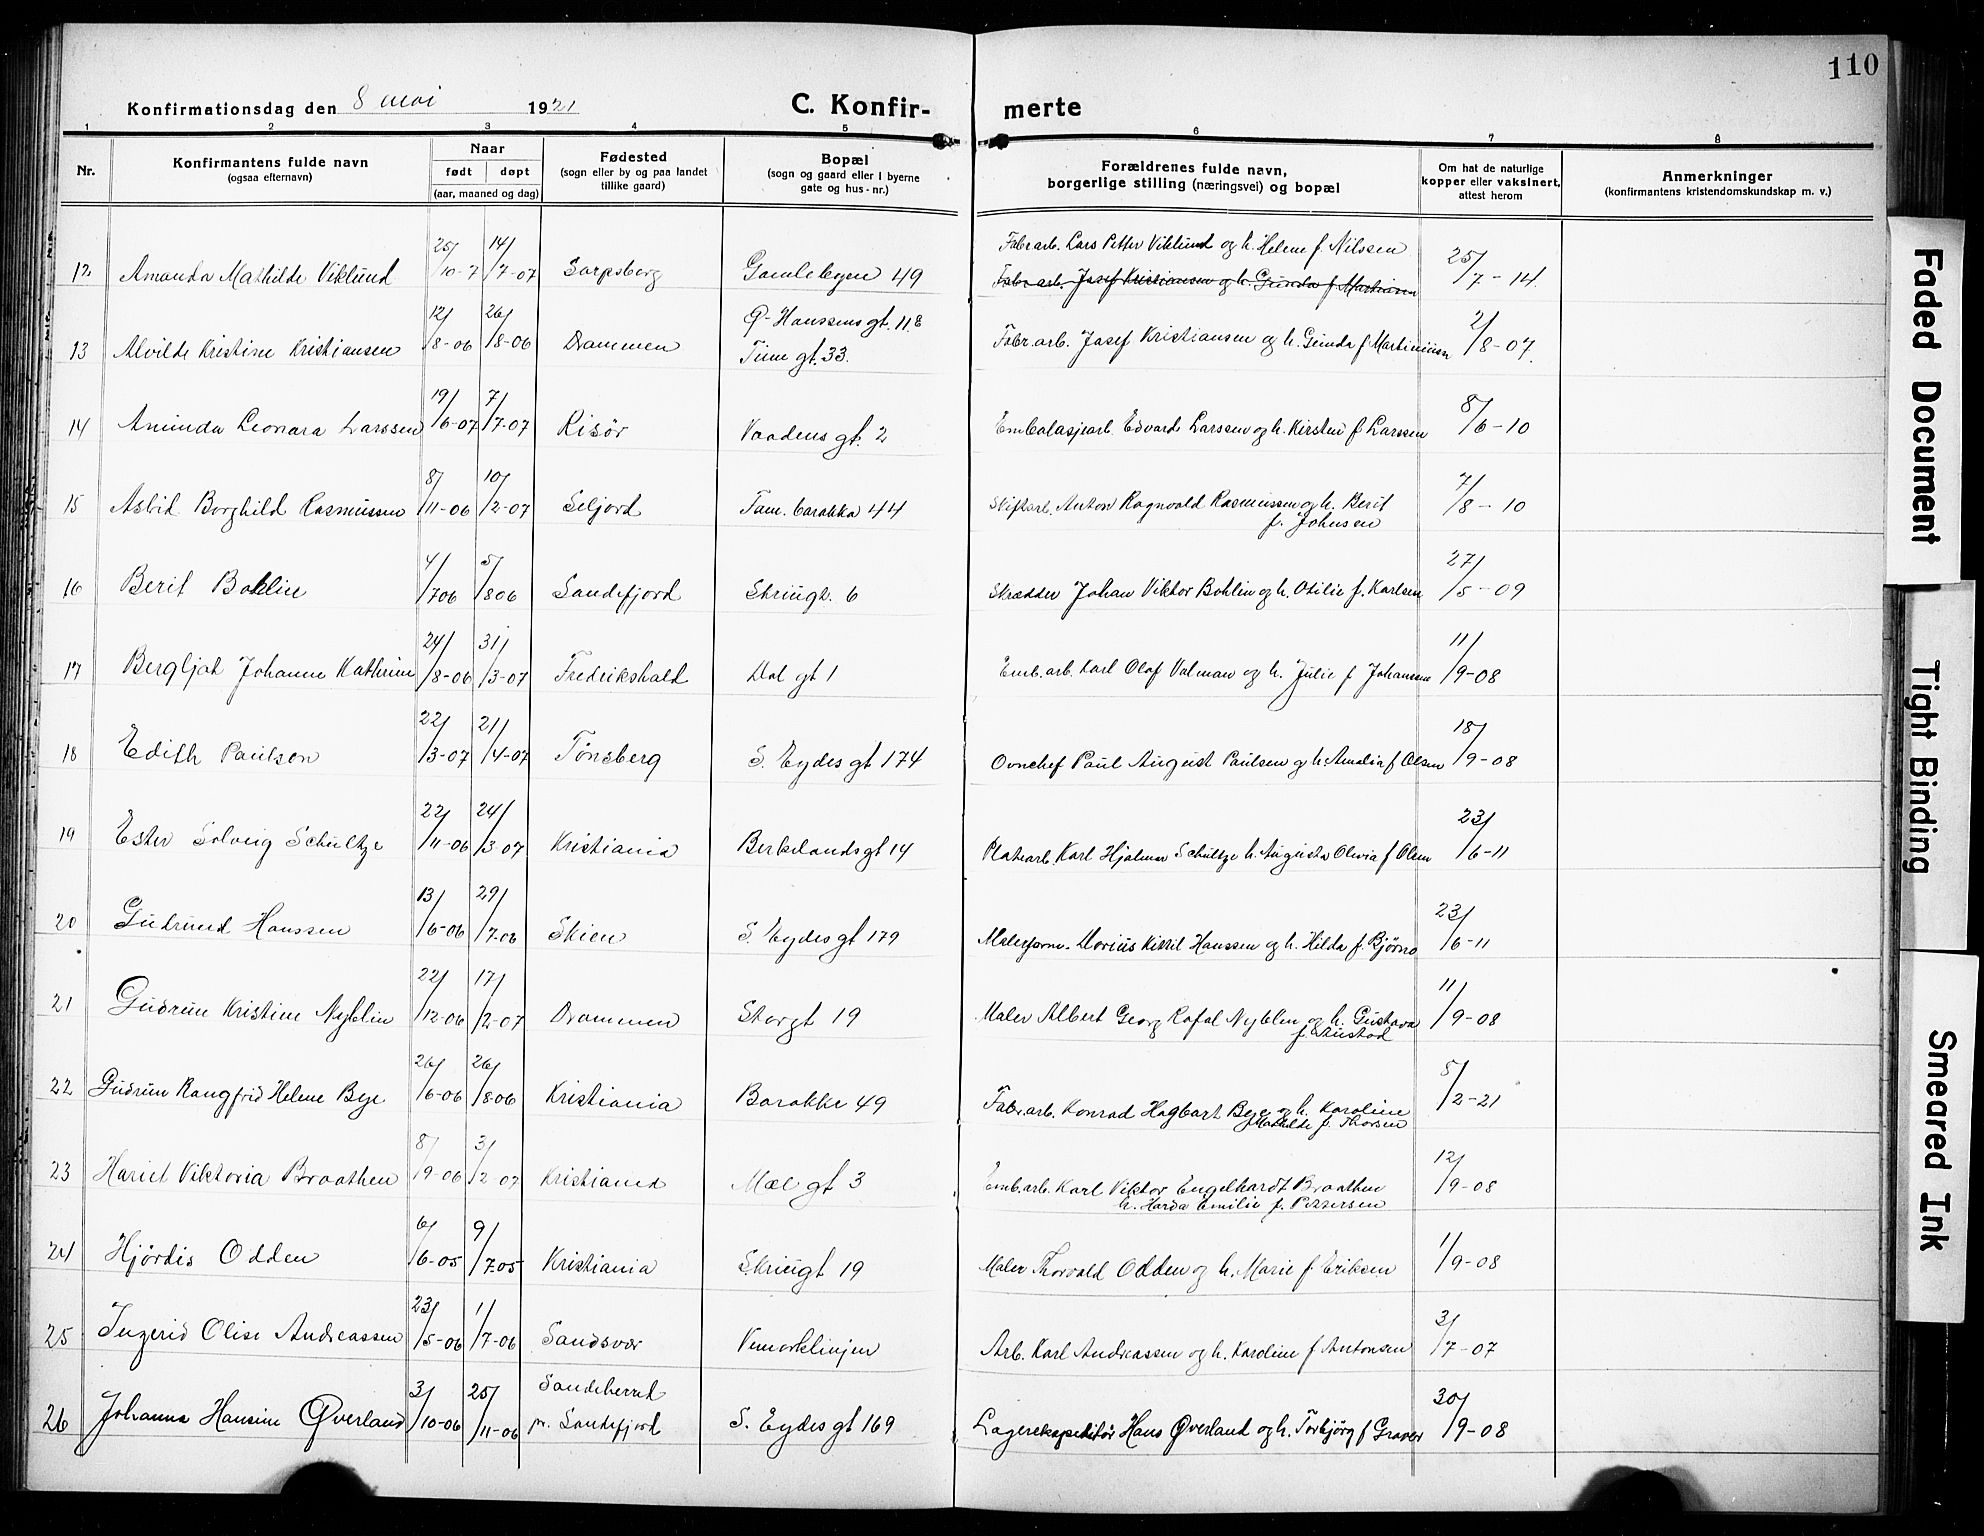 110
Konfirmationsdag den 8 mai 1921
C. Konfir-
merte
1 2 3 4 5 6 7 8
Nr.
Konfirmantens fulde navn
(ogsaa efternavn)
Naar
født døpt
(aar, maaned og dag)
Fødested
(sogn eller by og paa landet
tillike gaard)
Bopæl
(sogn og gaard eller i byerne
gate og hus-nr.)
Forældrenes fulde navn,
borgerlige stilling (næringsvei) og bopæl
Om hat de naturlige
kopper eller vaksinert,
attest herom
Anmerkninger
(konfirmantens kristendomskundskap m. v.)
12 Amanda Mathilde Viklund 25/10-7 14/7-07 Sarpsborg Gamlebyen 49 Fabr.arb. Lars Petter Viklund og h. Helene f. Nilssen 25/7-14
Fabr.arb. Josef Kristiansen og h. Gunda f Martinsen
13 Alvilde Kristine Kristiansen 12/8-06 26/8-06 Drammen Ø-Hanssens gt. 11 E
Tinn gt. 33. Fabr.arb. Josef Kristiansen og h. Gunda f Martinsen 2/8-07.
14 Aminda Leonara Larssen 19/6-07 7/7-07 Risør Vaadens gt. 2 Embalasjearb. Edvard Larssen og h. Kirsten f Larssen 8/6-10
15 Asbid Borghild Rasmussen 8/11-06 10/2-07 Seljord Tam. barakka 44 Skiftarb. Anton Ragnvald Rasmussen og h. Berit
f. Johnsen 7/8-10
16 Berit Bohlin 4/706 5/806 Sandefjord Skriugt. 6 Skrædder Johan Viktor Bohlin og h. Otilie f. Karlsen 27/5-09
17 Bergljot Johanne Kathrine 24/8-06 31/3-07 Fredrikshald Dal gt 1 Emb.arb. Karl Olaf Valman og h. Julie f Johanssen 11/9-08
18 Edith Paulsen 22/3-07 21/4-07 Tønsberg S. Eydes gt 174 Ovnchef Paul August Paulsen og h. Amalia f Olsen 18/9-08
19 Ester Solveig Schultze 22/11-06 24/3-07 Kristiania Berkelands gt 14 Platearb. Karl Hjalmar Schultze h. Augusta Olivia f Olsen 23/6-11
20 Gudrund Hanssen 13/6-06 29/7-06 Skien S. Eydes gt 179 Malerform. Marius Kittil Hanssen og h. Hilda f. Bjørno 23/6-11
21 Gudrun Kristine Nyblin 22/12-06 17/2-07 Drammen Storgt 19 Maler Albert Georg Rafal Nyblin og h. Gustava
f. Austad 11/9-08
22 Gudrun Rangfrid Helene Bye 26/6-06 26/8-06 Kristiania Barakke 49 Fabr.arb. Konrad Hagbart Bye og h. Karoline
Mathilde f. Thorsen 5/2-21
23 Hariet Viktoria Braathen 8/9-06 3/2-07 Kristiania Mæl gt 3 Emb.arb. Karl Viktor Engelhardt Braathen
h. Harda Emilie f. Pettersen 12/9-08
24 Hjördis Odden 6/6-05 9/7-05 Kristiania Skriugt 19 Maler Thorvald Odden og h. Marie f Eriksen 1/9-08
25 Ingerid Olise Andreassen 23/5-06 1/7-06 Sandsvær Vemorklinjen Arb. Karl Andreassen og h. Karoline f Antonsen 3/7-07
26 Johanna Hansine Øverland 3/10-06 25/11-06 Sandeherred
pr. Sandefjord S. Eydes gt 169 Lagerekspeditör Hans Øverland og h. Torbjörg f Graver 30/9-08
Faded Document
Tight Binding
Smeared Ink